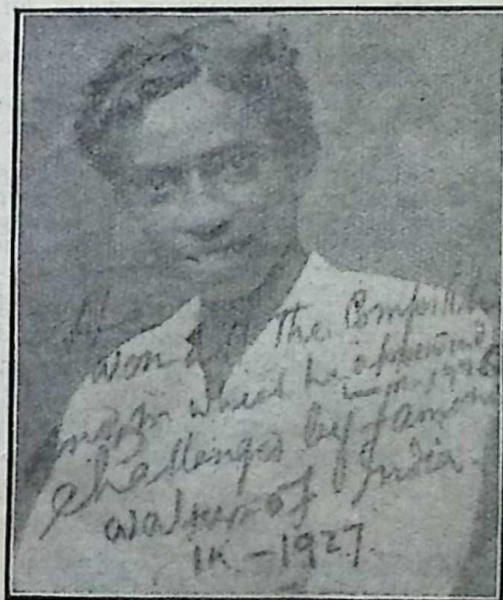 He
won all the Competition
in which he appeared
in 1926
challenges by famous
walker of India
in - 1927.